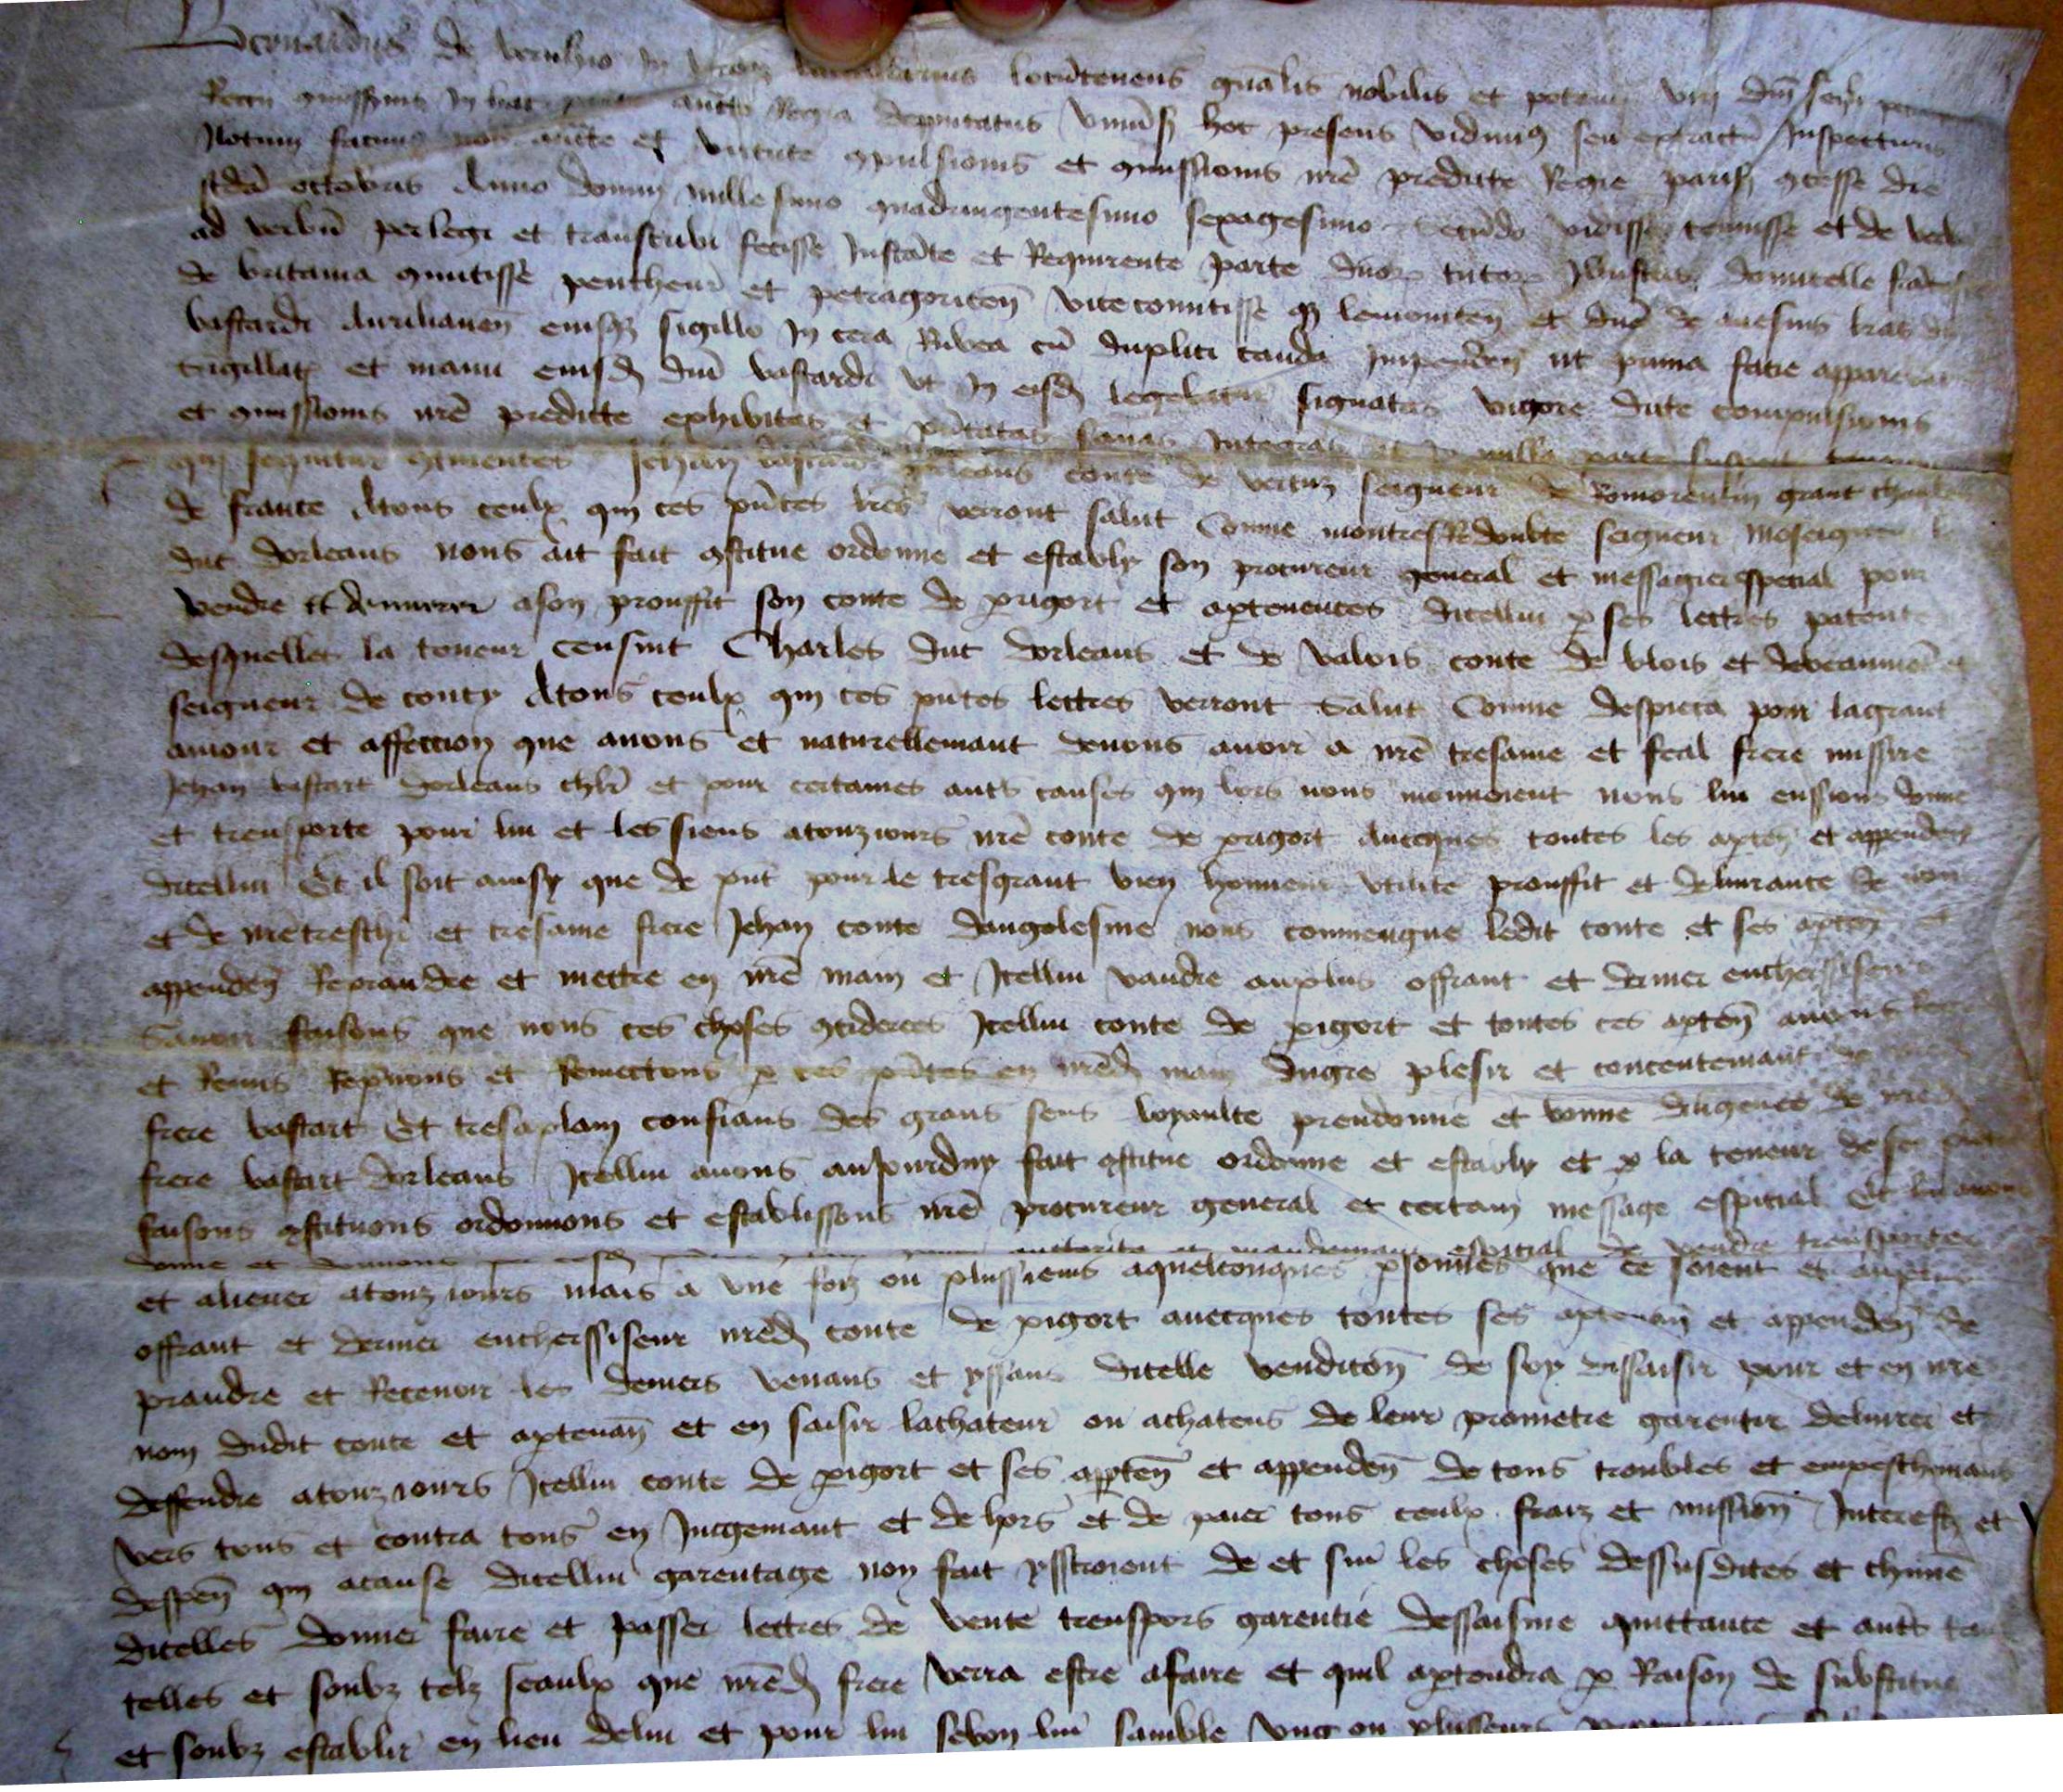 Bernardus de vernhio In locutenens gnalis nobilis et potentis viri dni
auctte Regia deputatus Univsis hoc presens vidimus seu extractu Inspecturis
Notum facimus et virtute gpulsionis et gmissionis nre predicte Regie gcesse die
octobris Anno domini millesimo quadringentesimo sexagesimo secundo vidisse tenuisse et de verbo
ad verbu perlegi et transcribi fecisse Instate et Requirente parte duor tutor Illustris domicelle
de britania gmitisse pentheur et petragoricen vicecomitisse lemovicen et dne de avesnis lras
bastardi Aurelianen eiusqz sigillo In cera Rubea cu duplici cauda ut prima facie apparebat
sigillat et manu eiusd dni bastardi ut In eisd legebatur signatas vigore dicte compulsionis
et gmissionis nre predicte exhibitas et pntatas sanas Integras et In nulla parte
sequitur gtinentes Jehan bastart dorleans conte de vertuz seigneur de Romorentin grant chambellan
de france Atous ceulx qui ces pntes lres verront salut Comme montresRedoubte seigneur moseigneur le
duc dorleans nous ait fait gstitue ordonne et estably son procureur general et messagier special pour
vendre et ason prouffit son conte de pigort et aptenences dicellui p ses lettres patentes
desquelles la teneur censuit Charles duc dorleans et de valois conte de blois et debeaumont et
seigneur de coucy Atous ceulx qui ces pntes lettres verront Salut Comme despieca pour lagrant
amour et affection que avons et naturellemant devons avoir a nre tresame et feal frere missire
Jehan bastart dorleans chlr et pour certaines autrs causes qui lors nous mouvoient nous lui eussions donne
et trensporte pour lui et les siens atouziours nre conte de pigort Avecques toutes les apten et appenden
dicellui Et il soit ainsy que de pnt pour le tresgrant bien honneur utilite prouffit et delivrance de nous
et de nre treschr et tresame frere Jehan conte dangolesme nous conveingne ledit conte et ses apten et
appenden Reprandre et mettre en nre main et Icellui vandre auplus offrant et dernier encherissiseur
Savoir faisons que nous ces choses gsiderees Icellui conte de pigort et toutes ces apten avons
et Remis Reprenons et Remectons p ces pntes en nred main dugre plesir et concentemant de
frere bastart Et tresaplain confians des grans sens loyaulte preudomie et bonne diligence de nred
frere bastart dorleans Icellui avons aujourduy fait gstitue ordonne et estably et p la teneur de ses
faisons gstituons ordonnons et establissons nre procureur general et certain message espicial Et lui avons
donne et donnons auctorite et mandemant espicial de vendre transporter
et aliener atouziours mais a une foiz ou plussieurs aquelconques psonnes que ce soient et auplus
offrant et dernier encherissiseur nred conte de pigort avecques toutes ses aptenan et appenden de
prandre et Recevoir les deniers venans et yssans dicelle vendicon de soy dissaisir pour et en nre
nom dudit conte et aptenan et en saisir lachateur ou achateurs de leur prometre garentir delivrer et
deffendre atouziours Icellui conte de pigort et ses apten et appenden de tous troubles et empeschemans
vers tous et contra tous en Jugemant et dehors et de paier tous ceulx fraiz et mission Interestz et
despen qui acause dicellui garentage non fait ysstroient de et sur les choses dessusdites et chune
dicelles donner faire et passer lettres de vente trenspors garentie dessaisine quittance et autrs
telles et soubz telz seaulx que nred frere verra estre afaire et quil aptendra p Raison de substituer
et soubz establir en lieu delui et pour lui selon lui samble ung ou plusseurs